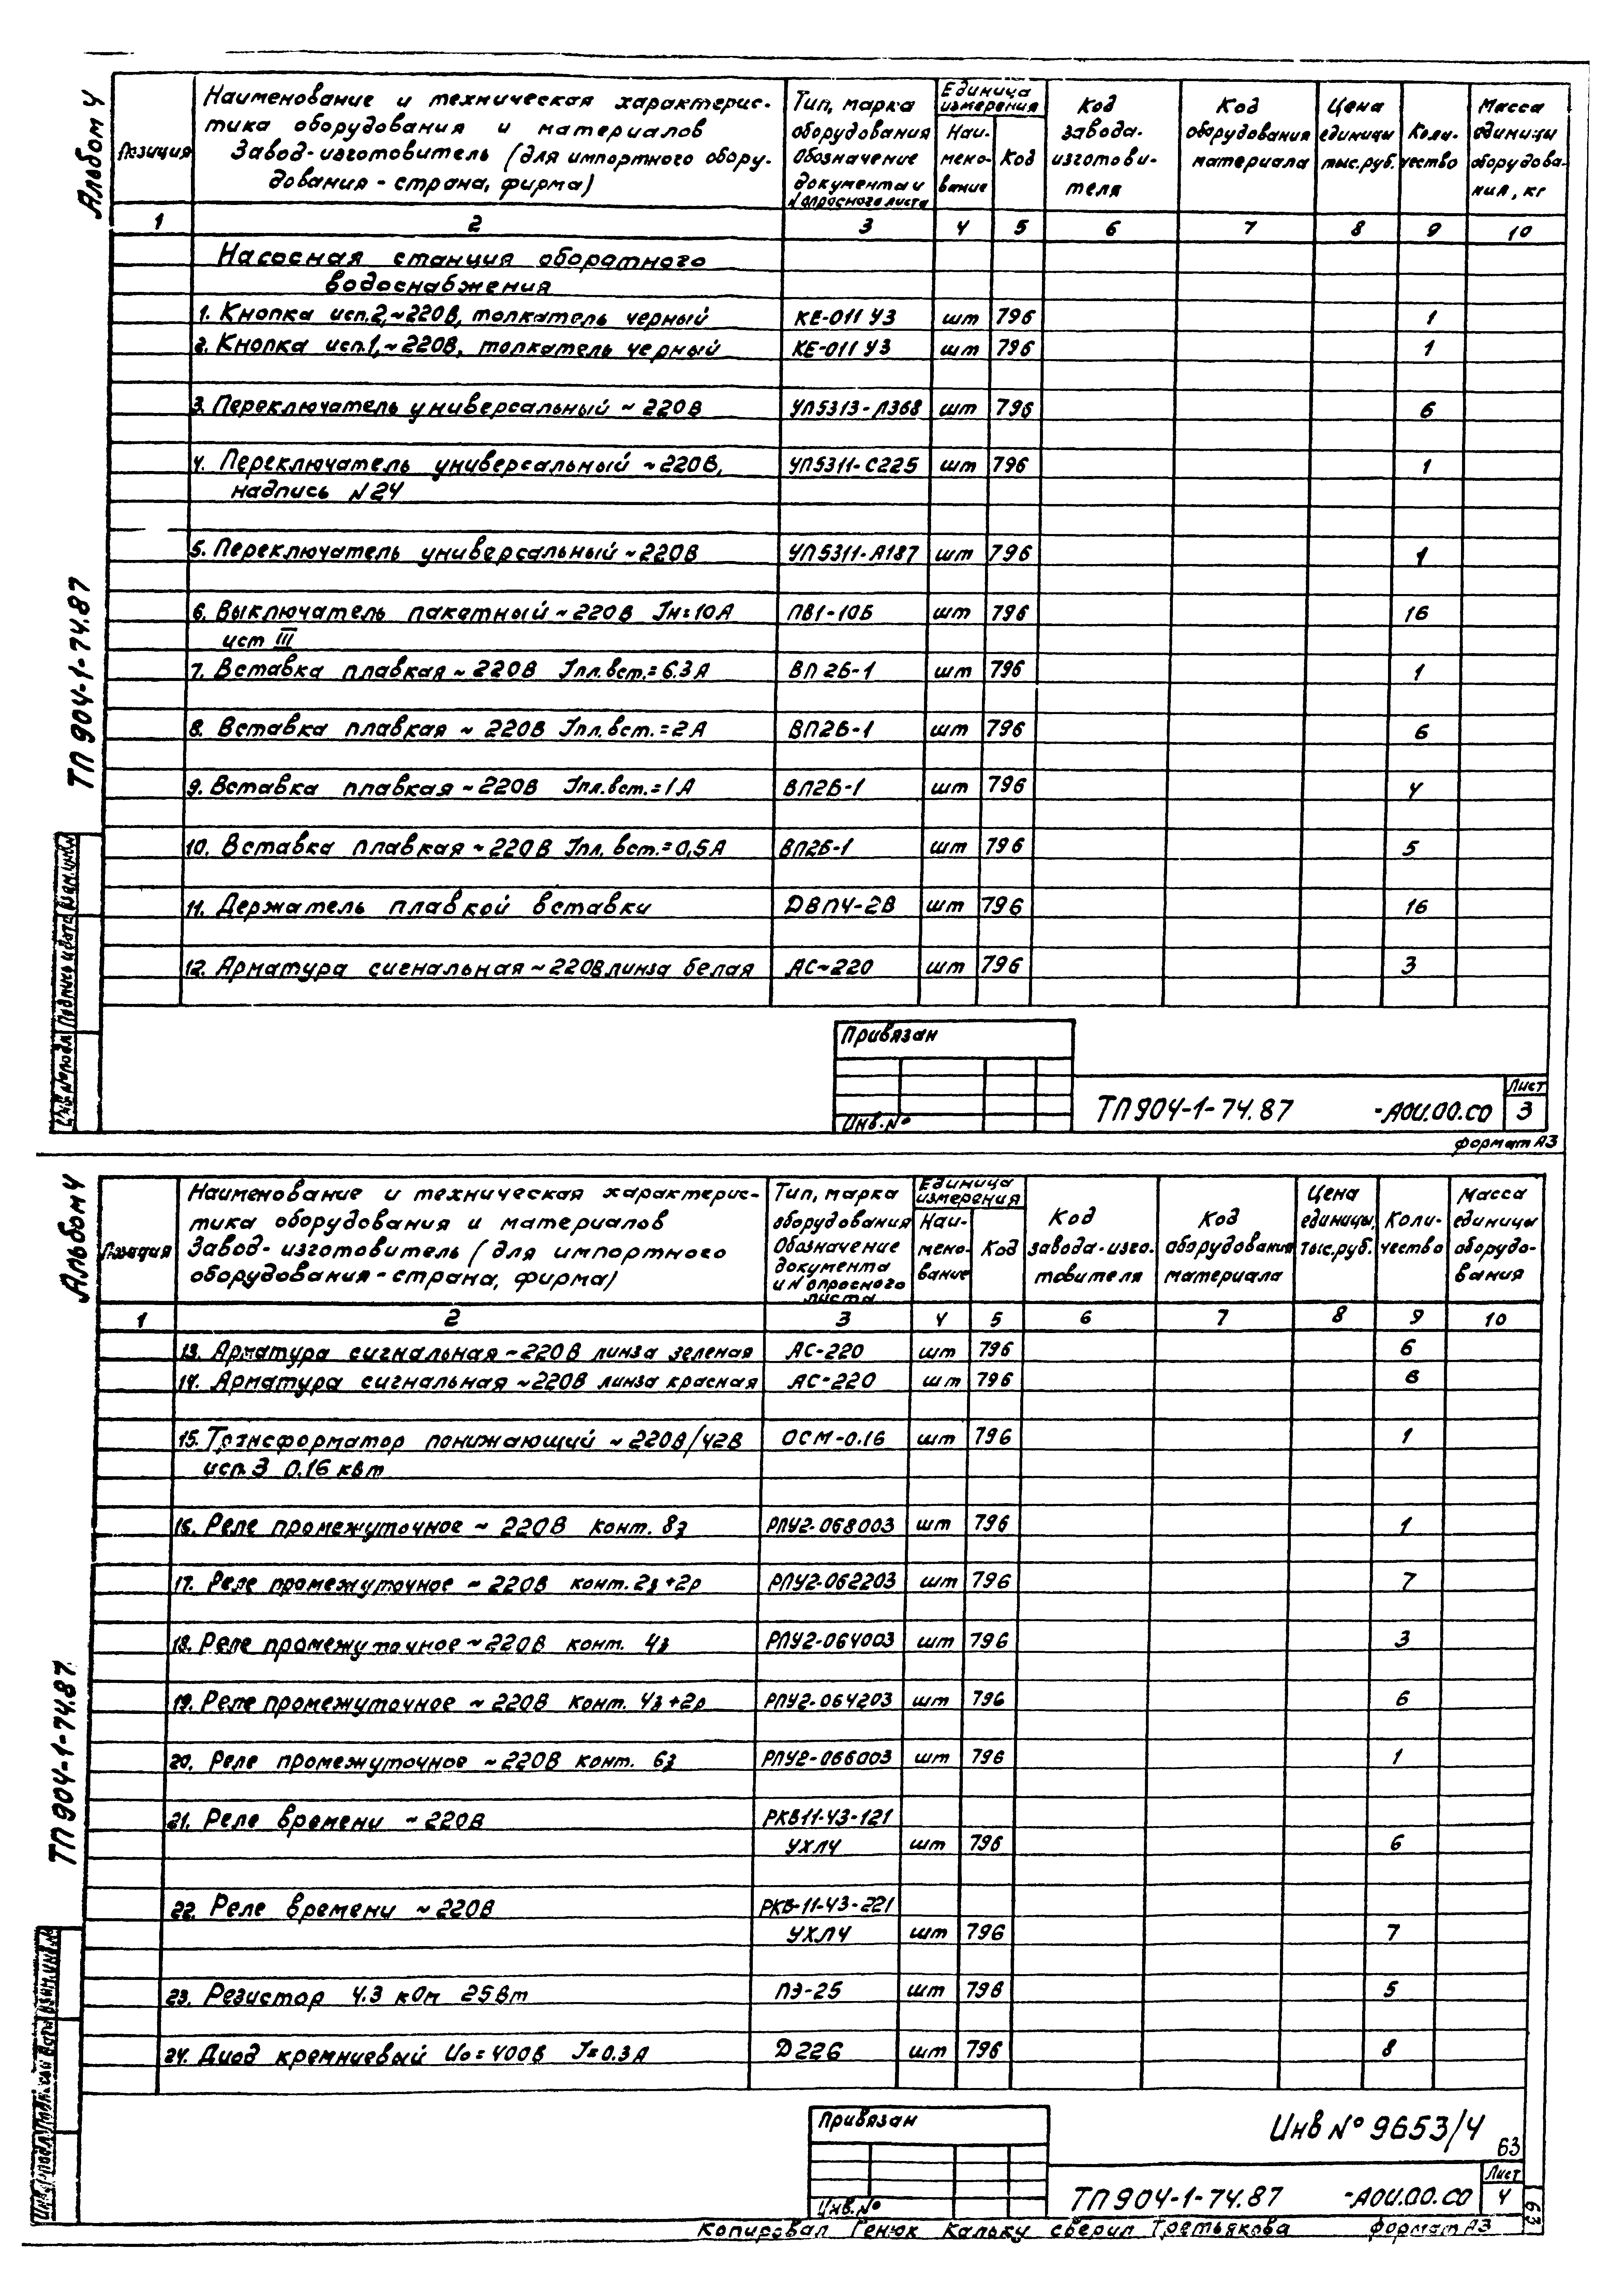 Альбом 4
ТП 904-1-74.87
Позиция
Наименование и техническая характерис-
тика оборудования и материалов
Завод-изготовитель (для импортного обору-
дования - страна, фирма)
Тип, марка
оборудования
Обозначение
документа и
№ опросного листа
Единица
измерения
Наи-
мено-
вание
Код
Код
завода-
изготови-
теля
Код
оборудования
материала
Цена
единицы
тыс.руб.
Коли-
чество
Масса
единицы
оборудова-
ния, кг
1 2 3 4 5 6 7 8 9 10
Насосная станция оборотного
водоснабжения
1. Кнопка исп.2,~220В, толкатель черный КЕ-011 У3 шт 796 1
2. Кнопка исп.1,~220В, толкатель черный КЕ-011 У3 шт 796 1
3. Переключатель универсальный ~ 220В УП5313-Л368 шт 796 6
4. Переключатель универсальный ~220В, УП5311-С225 шт 796 1
надпись №24
5. Переключатель универсальный ~220В УП5311-А187 шт 796 1
6. Выключатель пакетный ~ 220В Iн=10А ПВ1-10Б шт 796 16
исп III
7. Вставка плавкая ~ 220В Iпл.вст.=6.3А ВП2Б-1 шт 796 1
8. Вставка плавкая ~ 220В Iпл.вст.=2А ВП2Б-1 шт 796 6
9. Вставка плавкая ~220В Iпл.вст.=1А ВП2Б-1 шт 796 4
10. Вставка плавкая ~220В Iпл.вст.=0,5А ВП2Б-1 шт 796 5
11. Держатель плавкой вставки ДВП4-2В шт 796 16
12. Арматура сигнальная ~220В линза белая АС-220 шт 796 3
Взам.инв.
Подпись и дата
Инв.№ подл.
Привязан
Инв.№
ТП904-1-74.87 -АОИ.00.СО
Лист
3
формат А3
Альбом 4
ТП904-1-74.87
Позиция
Наименование и техническая характерис-
тика оборудования и материалов
Завод-изготовитель (для импортного
оборудования - страна, фирма)
Тип, марка
оборудования
Обозначение
документа
и № опросного
листа
Единица
измерения
Наи-
мено-
вание
Код
Код
завода-изго-
товителя
Код
оборудования
материала
Цена
единицы,
тыс.руб.
Коли-
чество
Масса
единицы
оборудо-
вания
1 2 3 4 5 6 7 8 9 10
13. Арматура сигнальная ~220В линза зеленая АС-220 шт 796 6
14. Арматура сигнальная ~220В линза красная АС-220 шт 796
15. Трансформатор понижающий ~220В/42В ОСМ-0.16 шт 796 1
исп.3 0.16 квт
16. Реле промежуточное ~ 220В конт. 8з РПУ2-068003 шт 796 1
17. Реле промежуточное ~ 220В конт. 2з+2р РПУ2-062203 шт 796 7
18. Реле промежуточное ~220В конт. 4з РПУ2-064003 шт 796 3
19. Реле промежуточное ~ 220В конт. 4з+2р РПУ2-064203 шт 796 6
20. Реле промежуточное ~220В конт. 6з РПУ2-066003 шт 796 1
21. Реле времени ~220В РКВ11-43-121
УХЛ4 шт 796 6
22. Реле времени ~220В РКВ-11-43-221
УХЛ4 шт 796 7
23. Резистор 4.3 кОм 25Вт ПЭ-25 шт 796 5
24. Диод кремниевый Uо=400В I=0.3А Д226 шт 796 8
Привязан
Инв.№
Инв № 9653/4
63
ТП904-1-74.87 -АОИ.00.СО
Лист
4
63
Копировал Генюк Кальку сверил Третьякова формат А3